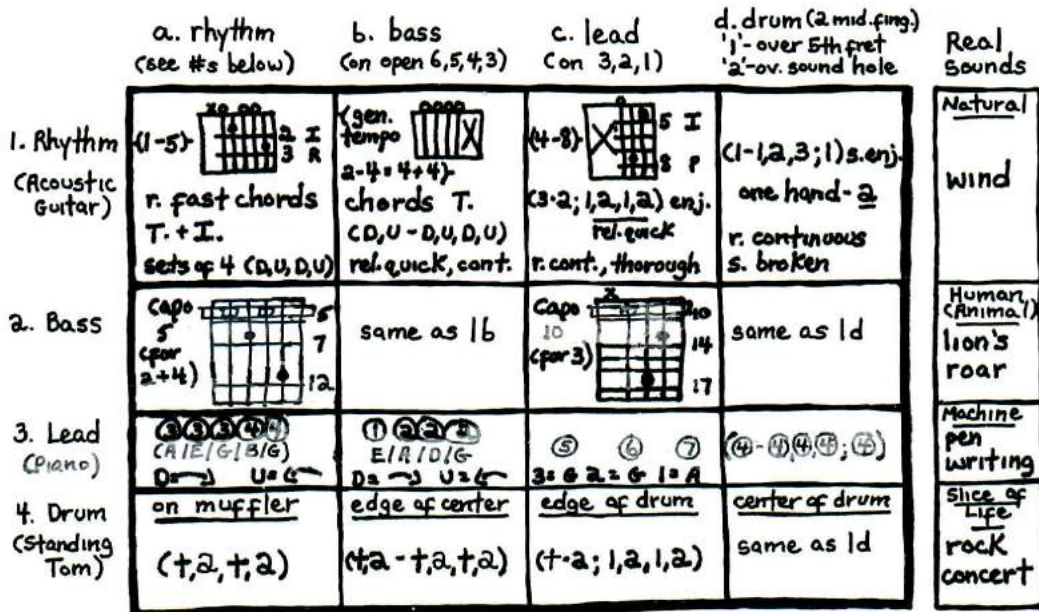 a. rhythm
(see #s below)
b. bass
(on open 6,5,4,3)
c. lead
(on 3,2,1)
d. drum (2 mid.fing.)
'1'- over 5th fret
'2'-ov. sound hole
Real
Sounds
1. Rhythm
(Acoustic
Guitar)
(1-5)
xo oo
2 I
3 R
r. fast chords
T. + I.
sets of 4 (D,U,D,U)
(gen.
tempo
oooo
X
2-4=4+4)
chords T.
(D,U - D,U,D,U)
rel. quick, cont.
(4-8)
o
X
5 I
8 P
(3·2; 1,2,1,2) enj.
rel. quick
r. cont., thorough
(1-1,2,3;1) s. enj.
one hand- a
r. continuous
s. broken
Natural
wind
2. Bass
Capo
5
(for
2+4)
5
7
12
same as 1b
Capo
10
(for 3)
x
10
14
17
same as 1d
Human
(Animal)
lion's
roar
3. Lead
(Piano)
3 3 3 4 4
(A/E/G/B/G)
D= U=
1 2 2
E/A/D/G
D= U=
5 6 7
3=G 2=G 1=A
(4-4,4,4;4)
Machine
pen
writing
4. Drum
(Standing
Tom)
on muffler
(t,2,t,2)
edge of center
(t,2 - t,2,t,2)
edge of drum
(t·2; 1,2,1,2)
center of drum
same as 1d
Slice of
Life
rock
concert